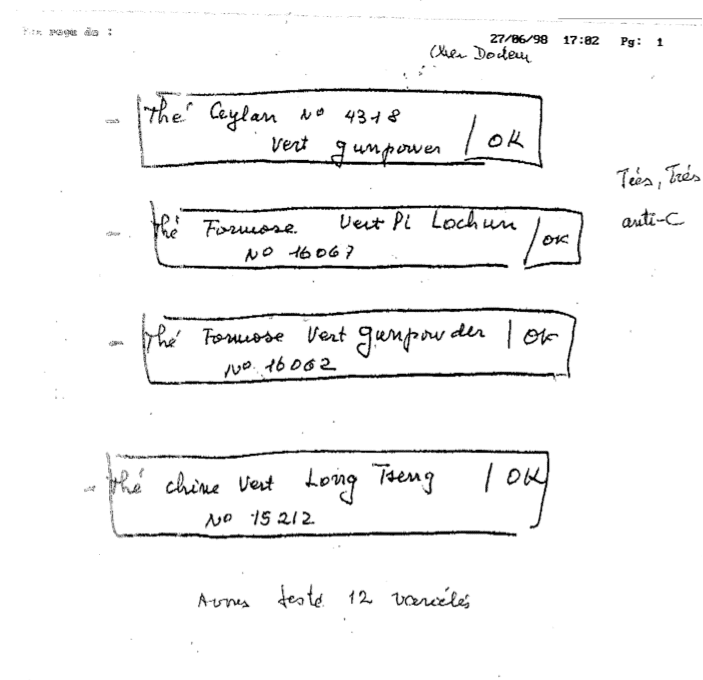 Fax reçu de : 27/06/98 17:02 Pg: 1
Cher Docteur
- Thé Ceylan N° 4318
Vert gunpower / OK
Très, Très
anti-C
- thé Formose Vert Pi Lochun / OK
N° 16067
- Thé Formose Vert gunpowder | OK
N° 16062
- thé chine Vert Long Tseng | OK
N° 15212
Avons testé 12 variétés